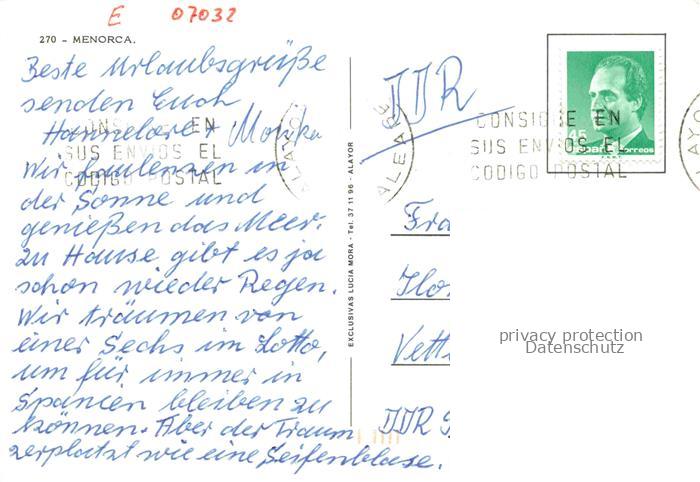 E 07032
270 – MENORCA.
Beste Urlaubsgrüße
senden Euch
Hannelore + Monika
Wir faulenzen in
der Sonne und
genießen das Meer.
zu Hause gibt es ja
schon wieder Regen.
Wir träumen von
einer Sechs im Lotto,
um für immer in
Spanien bleiben zu
können. Aber der Traum
zerplatzt wie eine Seifenblase.
EXCLUSIVAS LUCIA MORA - Tel. 37 11 96 - ALAYOR
DDR
CONSIGNE EN
SUS ENVIOS EL
CODIGO POSTAL
CONSIGNE EN
SUS ENVIOS EL
CODIGO POSTAL
45
España correos
Fra
Vett
DDR
privacy protection
Datenschutz